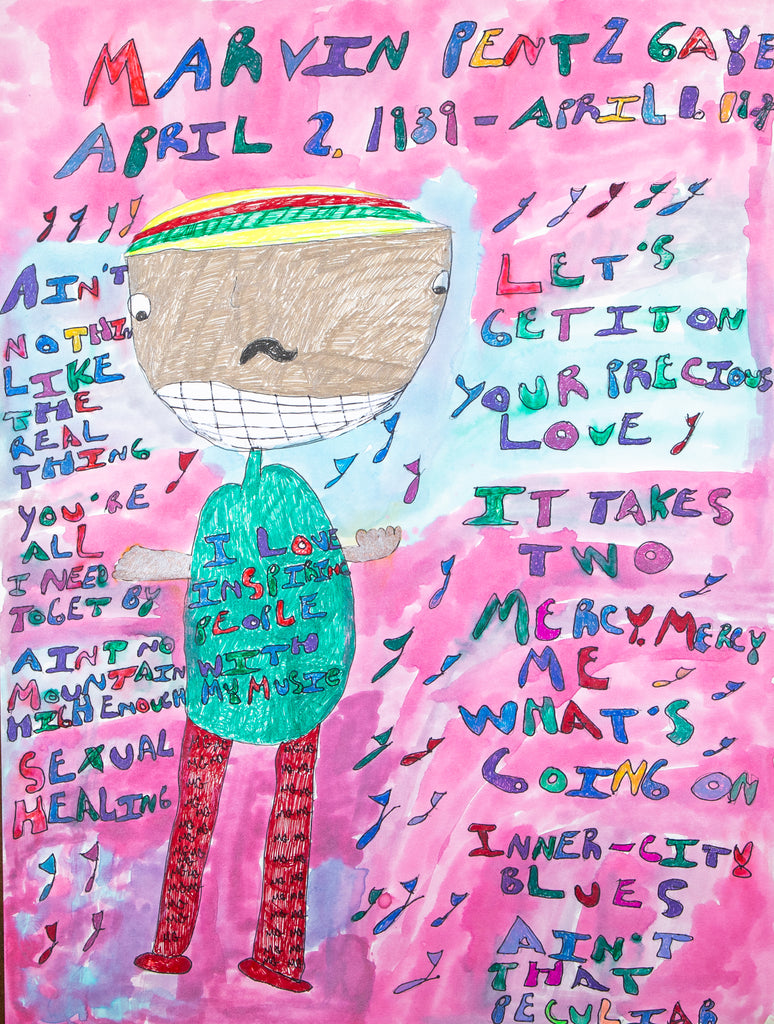 MARVIN PENTZ GAYE
APRIL 2. 1939 - APRIL 1. 19
AIN'T
NOTHIN
LIKE
THE
REAL
THING
YOU'RE
ALL
I NEED
TO GET BY
AINT NO
MOUNTAIN
HIGH ENOUGH
SEXUAL
HEALING
I LOVE
INSPIRING
PEOPLE
WITH
MY MUSIC
LET'S
GET IT ON
YOUR PRECIOUS
LOVE
IT TAKES
TWO
MERCY, MERCY
ME
WHAT'S
GOING ON
INNER-CITY
BLUES
AIN'T
THAT
PECULIAR